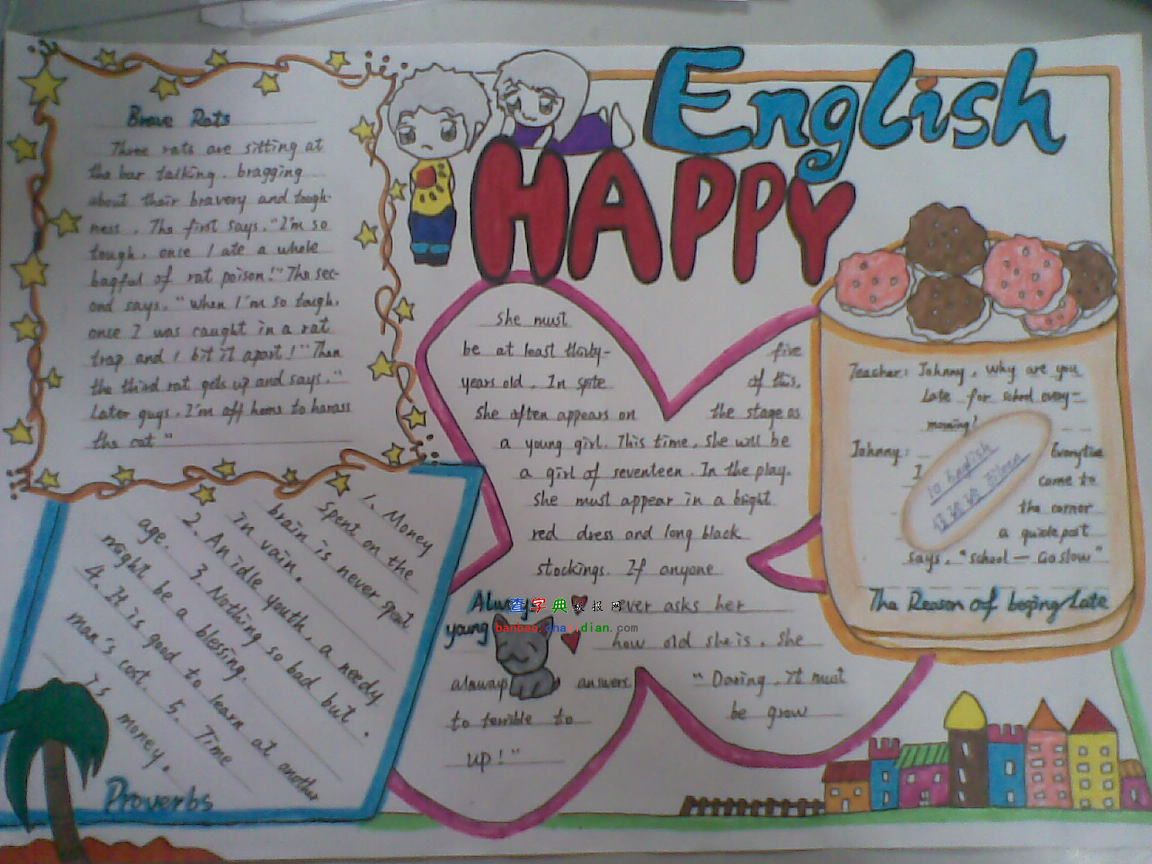 English
HAPPY
Brave Rats
Three rats are sitting at
the bar talking, bragging
about their bravery and tough-
ness. The first says, "I'm so
tough, once I ate a whole
bagful of rat poison!" The sec-
ond says, "When I'm so tough,
once I was caught in a rat
trap and I bit it apart!" Then
the third rat gets up and says, "
Later guys, I'm off home to harass
the cat"
1. Money
Spent on the
brain is never spent
in vain.
2. An idle youth, a needy
age. 3. Nothing so bad but
might be a blessing.
4. It is good to learn at another
man's cost. 5. Time
is money.
Proverbs
She must
be at least thirty- five
years old. In spite of this,
she often appears on the stage as
a young girl. This time, she will be
a girl of seventeen. In the play,
she must appear in a bright
red dress and long black
stockings. If anyone
ever asks her
how old she is, she
always answers "Daring, It must
to terrible to be grow
up!"
Always
young
查字典 报网
dian.com
Teacher: Johnny, why are you
Late for school every-
morning?
Johnny: Everytime
I come to
the corner
a guidepost
says, "school — Go slow"
The Reason of beging Late
to English